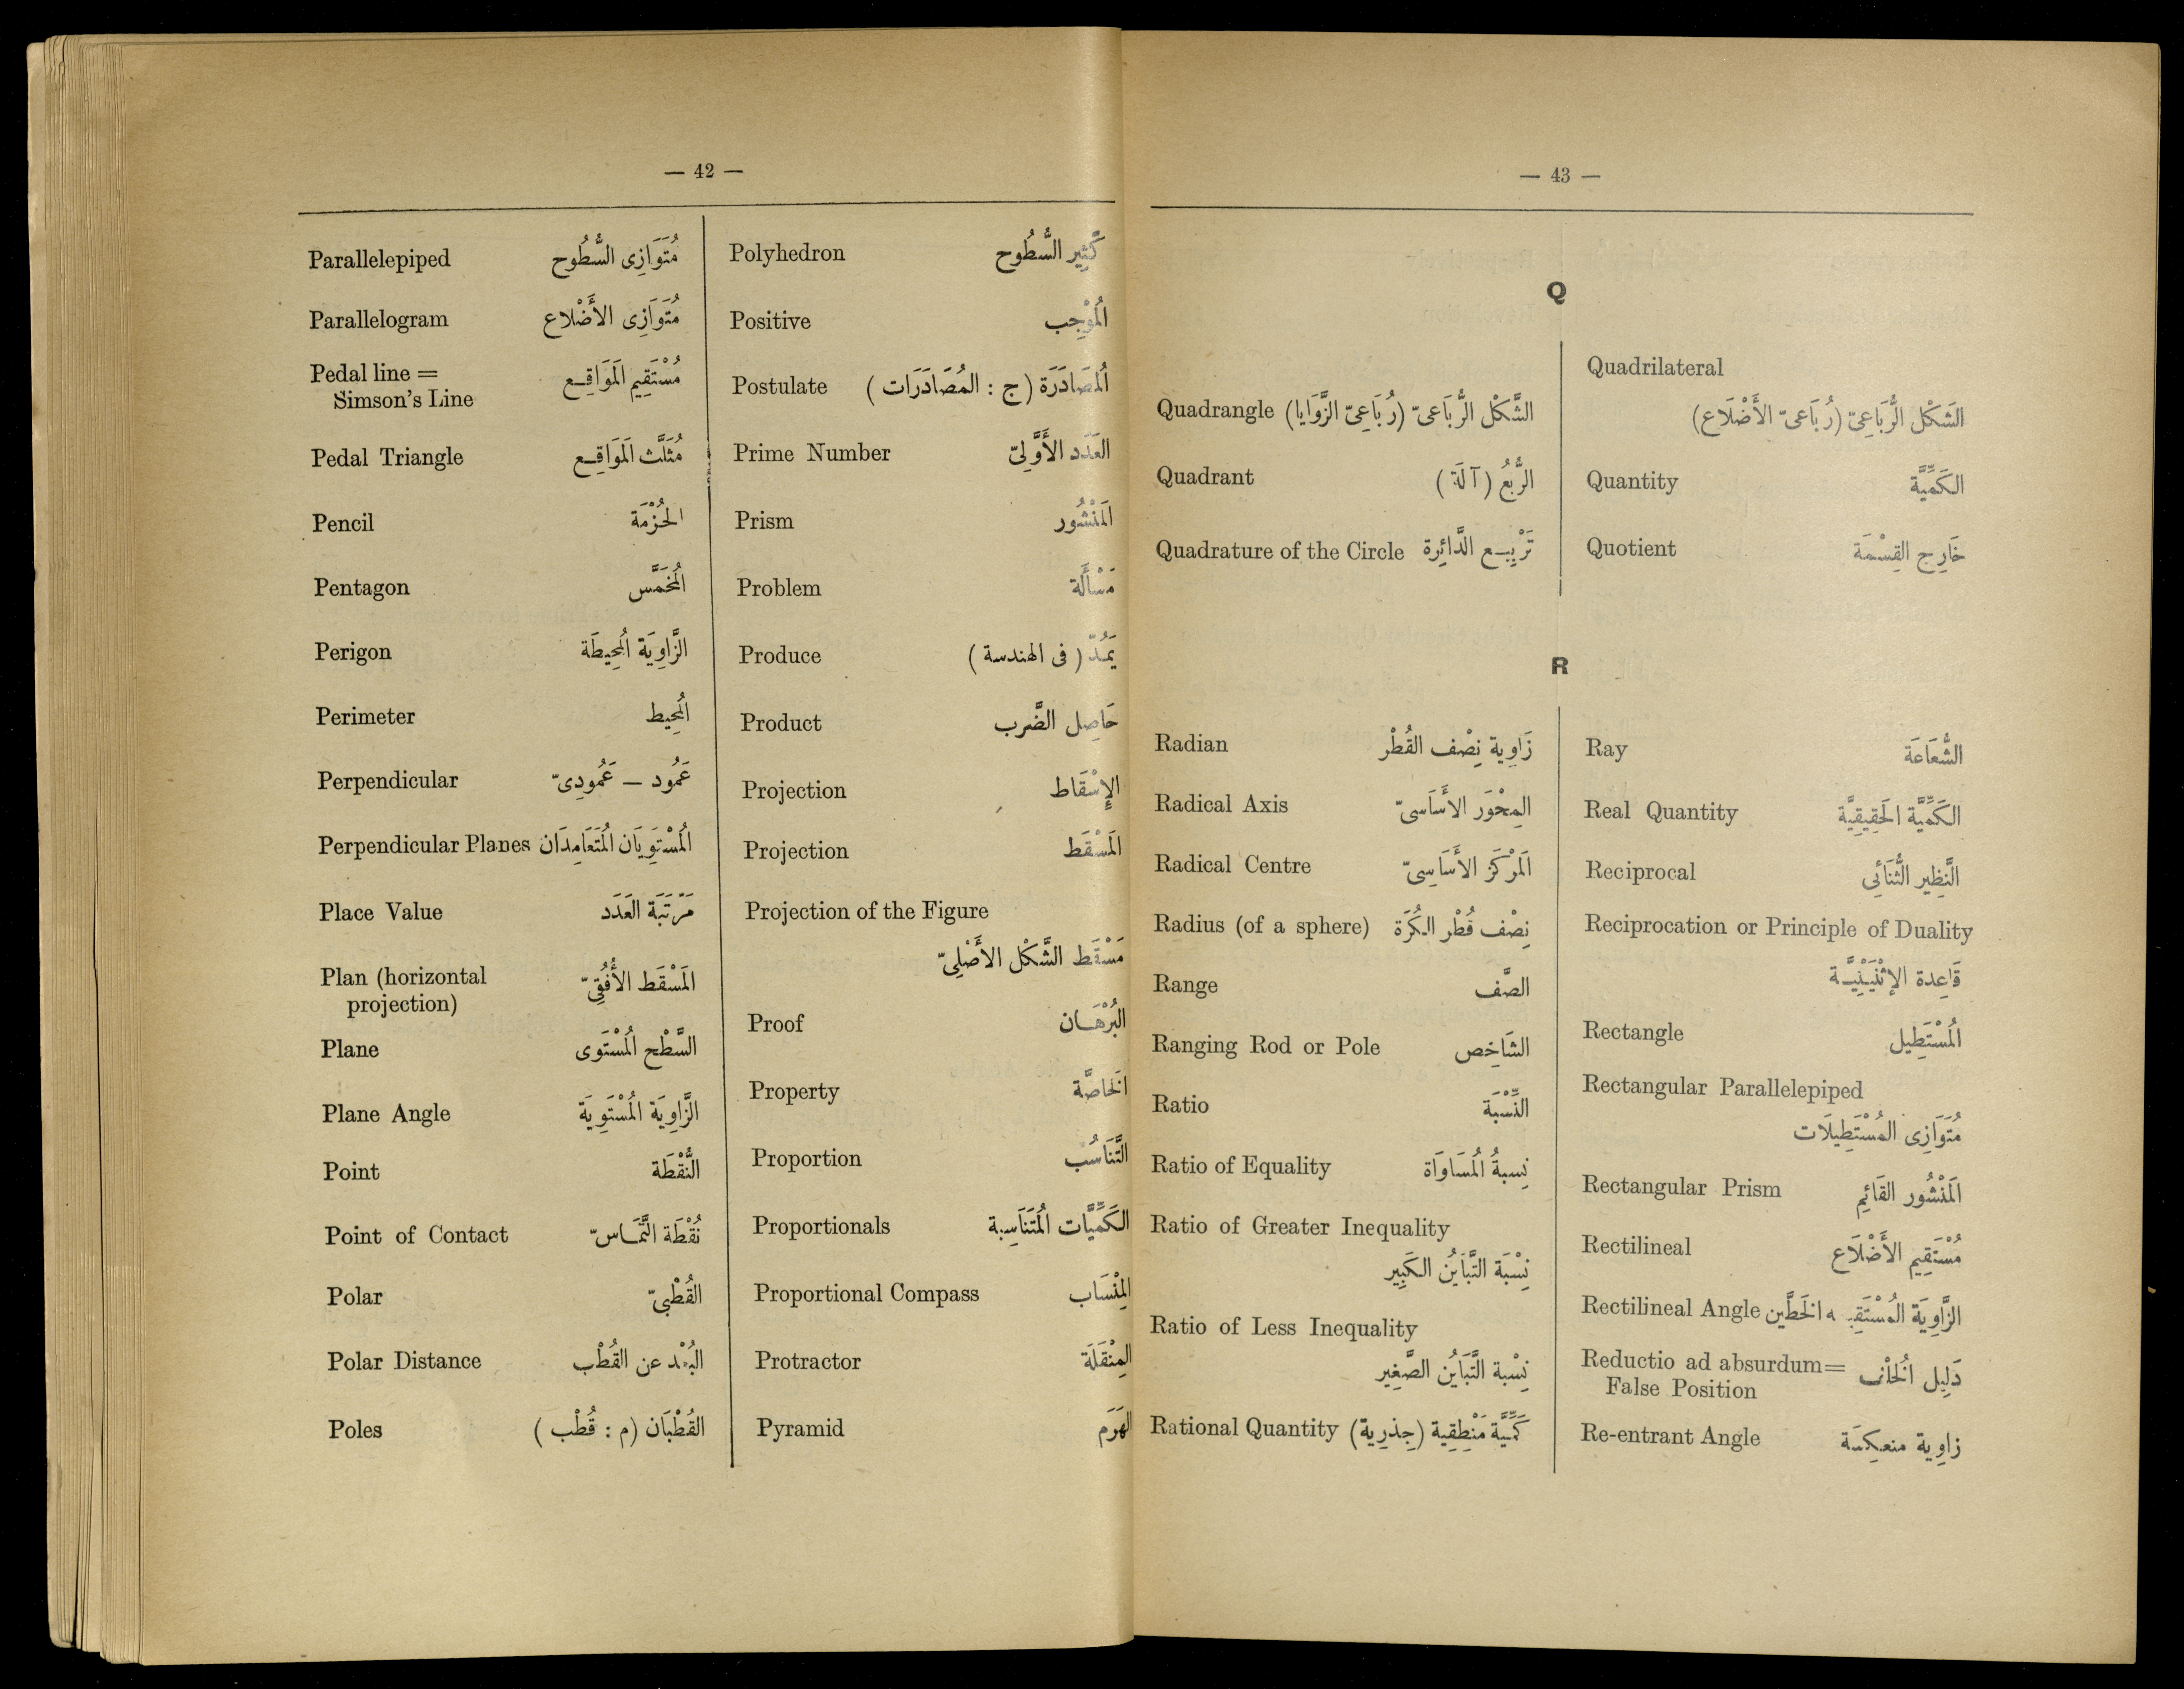 — 42 —
Parallelepiped مُتَوَازِى السُّطُوح
Parallelogram مُتَوَازِى الأَضْلاع
Pedal line = مُسْتَقِيم المَوَاقِع
Simson's Line
Pedal Triangle مُثَلَّث المَوَاقِع
Pencil الحُزْمَة
Pentagon المُخَمَّس
Perigon الزَّاوِيَة المُحِيطَة
Perimeter المُحِيط
Perpendicular عَمُود – عَمُودِىّ
Perpendicular Planes المُسْتَوِيَان المُتَعَامِدَان
Place Value مَرْتَبَة العَدَد
Plan (horizontal المَسْقَط الأُفُقِىّ
projection)
Plane السَّطْح المُسْتَوى
Plane Angle الزَّاوِيَة المُسْتَوِيَة
Point النُّقْطَة
Point of Contact نُقْطَة التَّمَاسّ
Polar القُطْبِىّ
Polar Distance البُعْد عن القُطْب
Poles القُطْبَان (م : قُطْب )
Polyhedron كَثِير السُّطُوح
Positive المُوْجِب
Postulate المُصَادَرَة (ج : المُصَادَرَات )
Prime Number العَدَد الأَوَّلِىّ
Prism المَنْشُور
Problem مَسْأَلَة
Produce يَمُدّ ( فى الهندسة )
Product حَاصِل الضَّرب
Projection الإِسْقَاط
Projection المَسْقَط
Projection of the Figure
مَسْقَط الشَّكْل الأَصْلِىّ
Proof البُرْهَان
Property الخَاصَّة
Proportion التَّنَاسُب
Proportionals الكَمِّيَّات المُتَنَاسِبة
Proportional Compass المِنْسَاب
Protractor المِنْقَلَة
Pyramid الهَرَم
— 43 —
Q
Quadrangle الشَّكْل الرُّبَاعىّ (رُبَاعِىّ الزَّوَايا)
Quadrant الرُّبْعُ ( آلَة )
Quadrature of the Circle تَرْبِيع الدَّائِرة
Quadrilateral
الشَكْل الرُّبَاعِىّ (رُبَاعىّ الأَضْلَاع)
Quantity الكَمِّيَّة
Quotient خَارِج القِسْمَة
R
Radian زَاوِية نِصْف القُطْر
Radical Axis المِحْوَر الأَسَاسىّ
Radical Centre المَرْكَز الأَسَاسِىّ
Radius (of a sphere) نِصْف قُطْر الكُرَة
Range الصَّف
Ranging Rod or Pole الشَاخِص
Ratio النِّسْبَة
Ratio of Equality نِسبةُ المُسَاوَاة
Ratio of Greater Inequality
نِسْبَة التَّبَايُن الكَبِير
Ratio of Less Inequality
نِسْبة التَّبَايُن الصَّغِير
Rational Quantity كَمِّيَّة مَنْطِقِية (جِذرِية)
Ray الشُّعَاعَة
Real Quantity الكَمِّيَّة الحَقِيقِيَّة
Reciprocal النَّظِير الثُّنَائِى
Reciprocation or Principle of Duality
قَاعِدة الإثْنَيْنِيَّة
Rectangle المُسْتَطِيل
Rectangular Parallelepiped
مُتَوَازِى المُسْتَطِيلَات
Rectangular Prism المَنْشُور القَائِم
Rectilineal مُسْتَقِيم الأَضْلَاع
Rectilineal Angle الزَّاوِيَة الخَطَّين
Reductio ad absurdum= دَلِيل الخُلْف
False Position
Re-entrant Angle زاوِية منعكِسَة